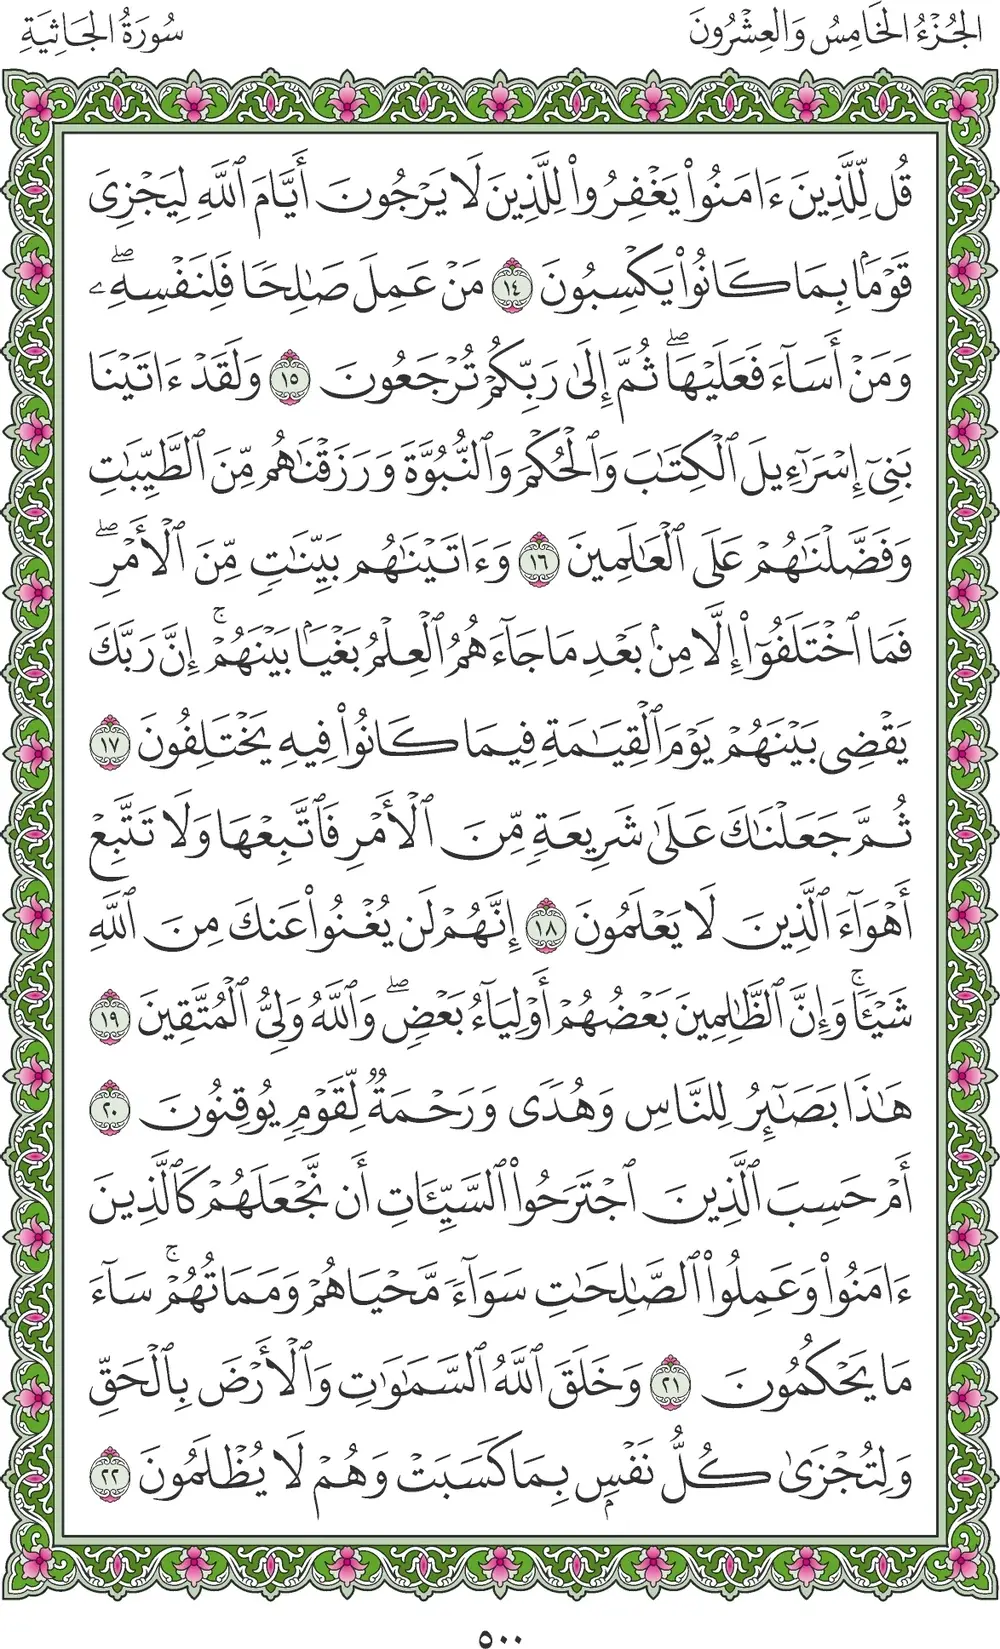 الجُزْءُ الخَامِسُ وَالعِشْرُونَ
سُورَةُ الجَاثِيَةِ
قُل لِّلَّذِينَ ءَامَنُوا۟ يَغْفِرُوا۟ لِلَّذِينَ لَا يَرْجُونَ أَيَّامَ ٱللَّهِ لِيَجْزِىَ
قَوْمَۢا بِمَا كَانُوا۟ يَكْسِبُونَ ١٤ مَنْ عَمِلَ صَٰلِحًا فَلِنَفْسِهِۦۖ
وَمَنْ أَسَآءَ فَعَلَيْهَاۖ ثُمَّ إِلَىٰ رَبِّكُمْ تُرْجَعُونَ ١٥ وَلَقَدْ ءَاتَيْنَا
بَنِىٓ إِسْرَٰٓءِيلَ ٱلْكِتَٰبَ وَٱلْحُكْمَ وَٱلنُّبُوَّةَ وَرَزَقْنَٰهُم مِّنَ ٱلطَّيِّبَٰتِ
وَفَضَّلْنَٰهُمْ عَلَى ٱلْعَٰلَمِينَ ١٦ وَءَاتَيْنَٰهُم بَيِّنَٰتٍ مِّنَ ٱلْأَمْرِۖ
فَمَا ٱخْتَلَفُوٓا۟ إِلَّا مِنۢ بَعْدِ مَا جَآءَهُمُ ٱلْعِلْمُ بَغْيَۢا بَيْنَهُمْۚ إِنَّ رَبَّكَ
يَقْضِى بَيْنَهُمْ يَوْمَ ٱلْقِيَٰمَةِ فِيمَا كَانُوا۟ فِيهِ يَخْتَلِفُونَ ١٧
ثُمَّ جَعَلْنَٰكَ عَلَىٰ شَرِيعَةٍ مِّنَ ٱلْأَمْرِ فَٱتَّبِعْهَا وَلَا تَتَّبِعْ
أَهْوَآءَ ٱلَّذِينَ لَا يَعْلَمُونَ ١٨ إِنَّهُمْ لَن يُغْنُوا۟ عَنكَ مِنَ ٱللَّهِ
شَيْـًٔاۚ وَإِنَّ ٱلظَّٰلِمِينَ بَعْضُهُمْ أَوْلِيَآءُ بَعْضٍۖ وَٱللَّهُ وَلِىُّ ٱلْمُتَّقِينَ ١٩
هَٰذَا بَصَٰٓئِرُ لِلنَّاسِ وَهُدًى وَرَحْمَةٌ لِّقَوْمٍ يُوقِنُونَ ٢٠
أَمْ حَسِبَ ٱلَّذِينَ ٱجْتَرَحُوا۟ ٱلسَّيِّـَٔاتِ أَن نَّجْعَلَهُمْ كَٱلَّذِينَ
ءَامَنُوا۟ وَعَمِلُوا۟ ٱلصَّٰلِحَٰتِ سَوَآءً مَّحْيَاهُمْ وَمَمَاتُهُمْۚ سَآءَ
مَا يَحْكُمُونَ ٢١ وَخَلَقَ ٱللَّهُ ٱلسَّمَٰوَٰتِ وَٱلْأَرْضَ بِٱلْحَقِّ
وَلِتُجْزَىٰ كُلُّ نَفْسٍۭ بِمَا كَسَبَتْ وَهُمْ لَا يُظْلَمُونَ ٢٢
٥٠٠